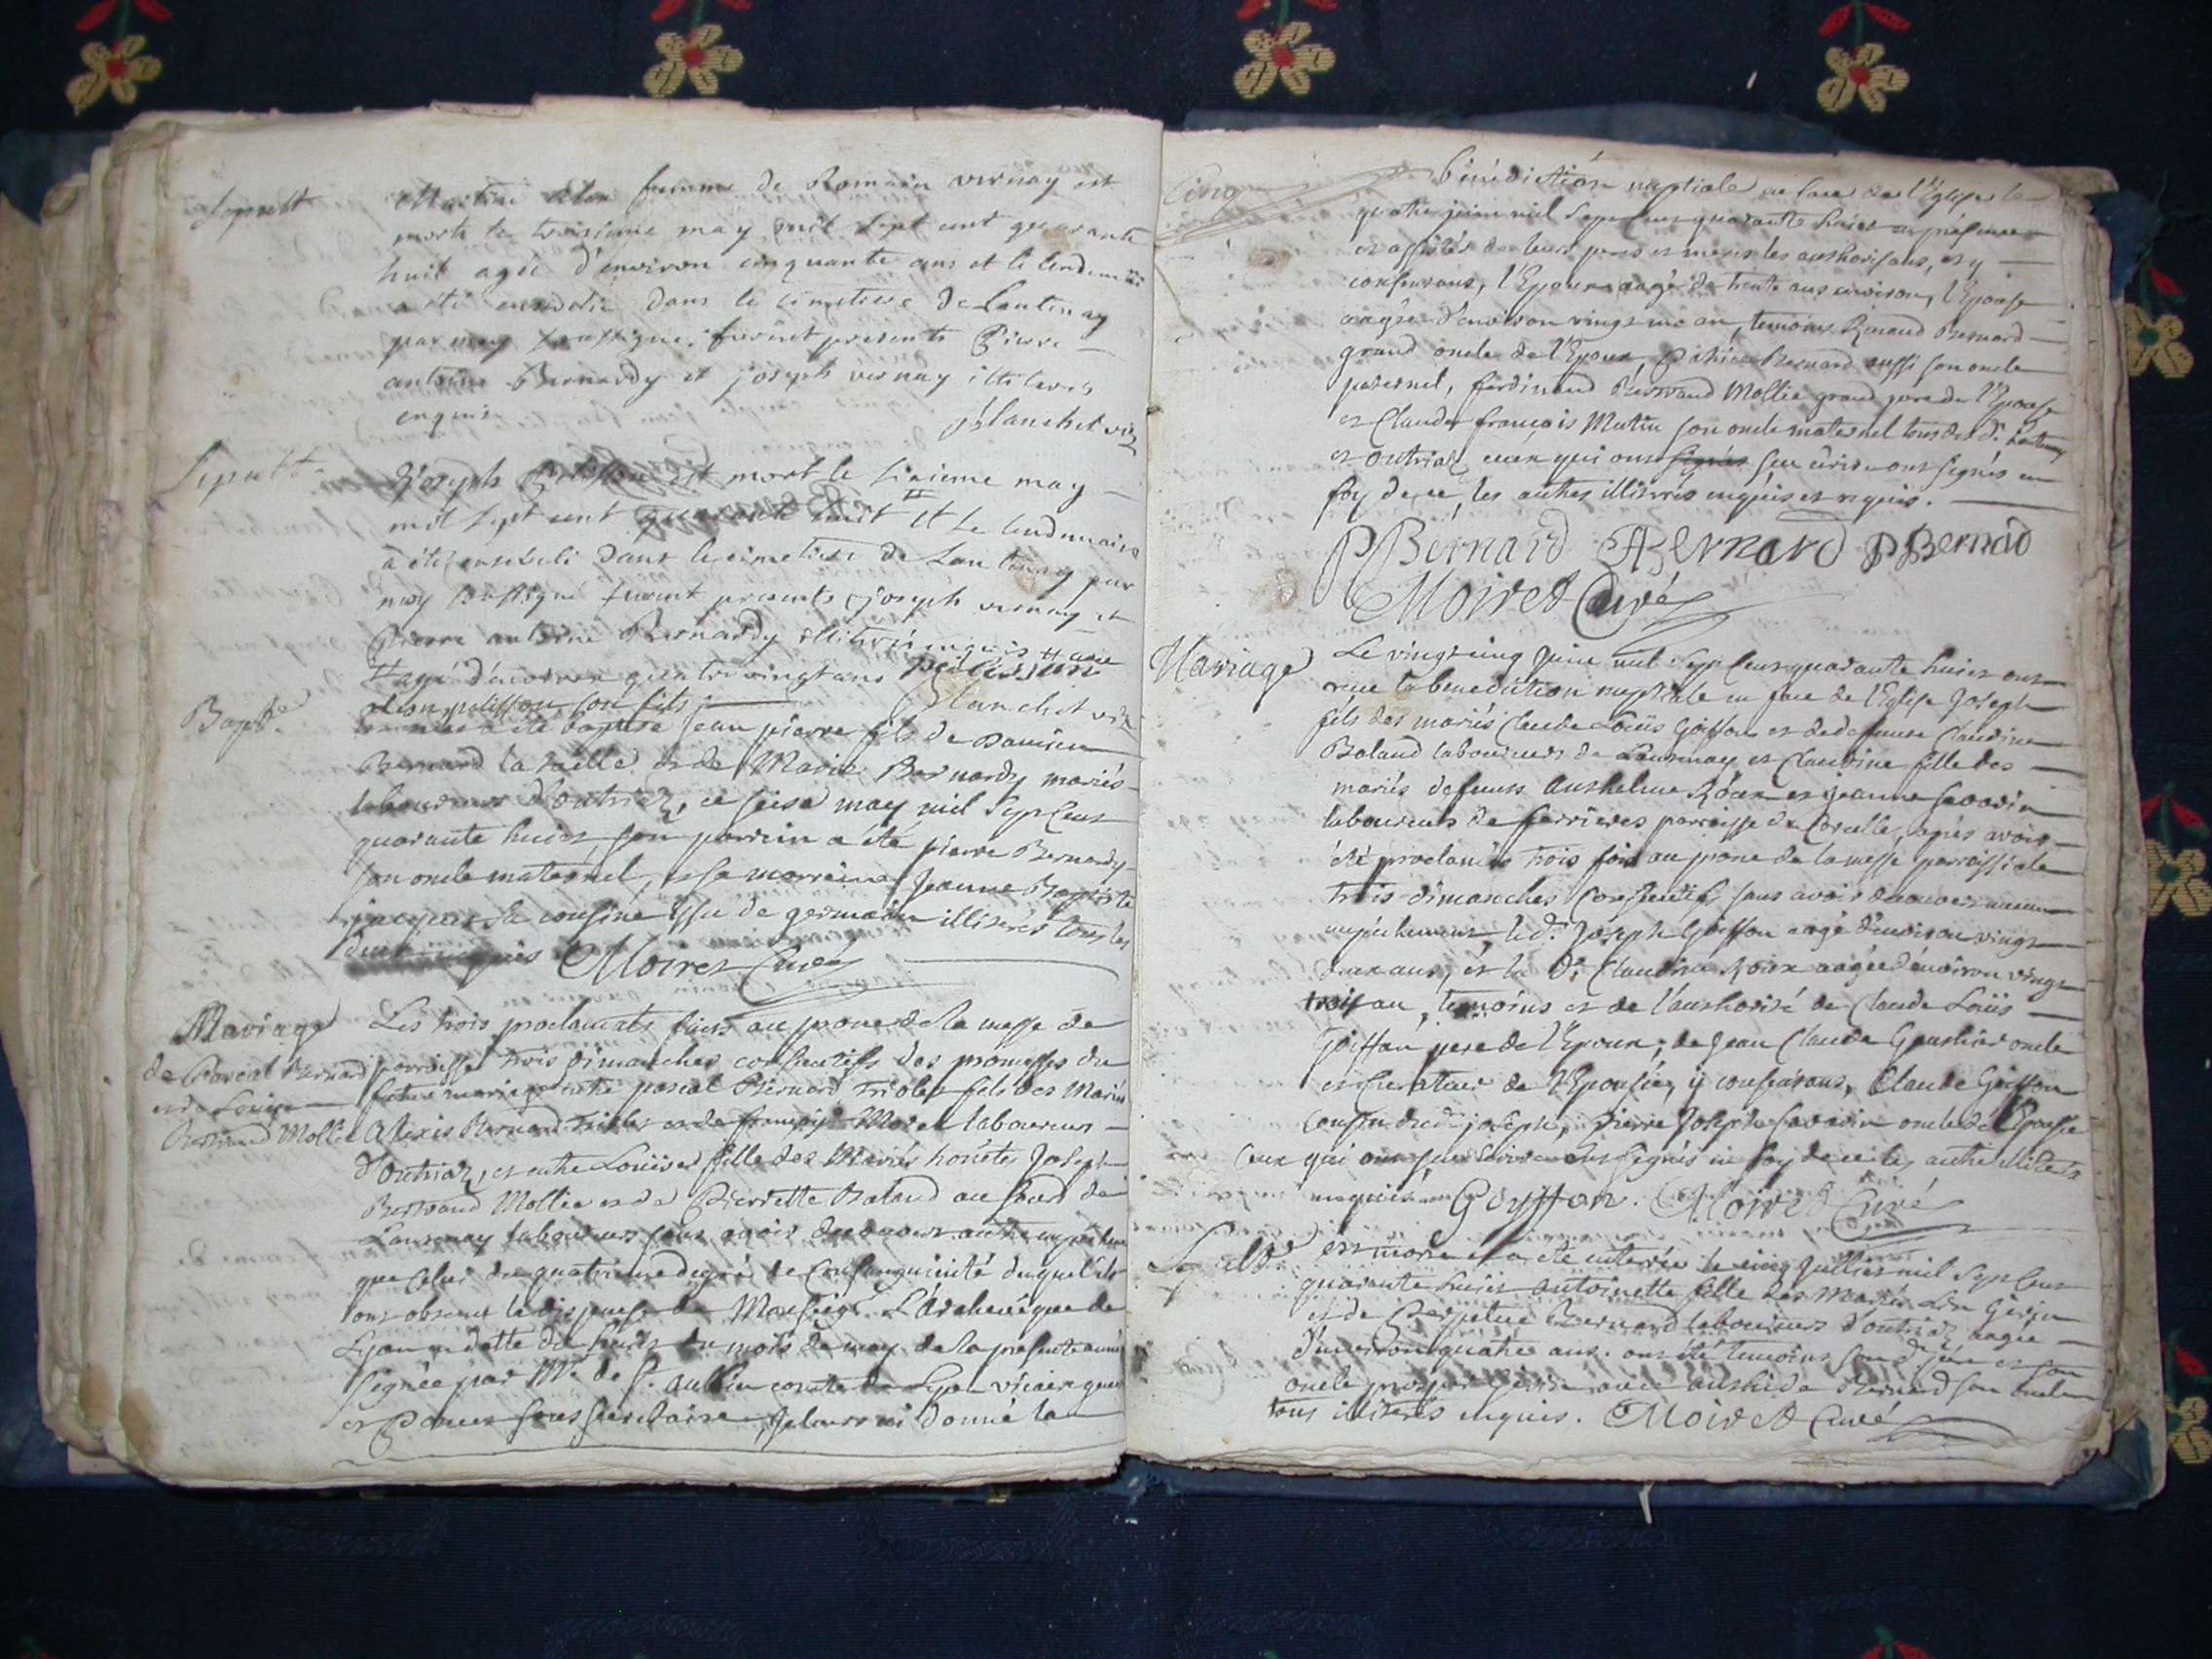 Sepult
femme de Romain vernay est
morte le troisieme may mil sept cent quarante
huit agée d'environ cinquante ans et le lendemain
a été ensevelie dans le cimetiere de Lantenay
par moy soussigné, furent presents Pierre
antoine Bernardy et joseph vernay illiterés
enquis Blanchet vic
Sepult
Joseph est mort le sixieme may
mil sept cent quarante huit et le lendemain
a été enseveli dans le cimetiere de Lantenay par
moy soussigné furent presents joseph vernay et
Pierre antoine Bernardy illiterés enquis
agé d'environ quatre vingt ans
son fils Blanchet vic
Bapt.
a été baptisé jean pierre fils de Damien
Bernard la taille et de Marie Bernardy mariés
laboureurs d'outriaz, ce seise may mil sept cent
quarante huict, son parrein a été pierre Bernardy
son oncle maternel, et sa marreine Jeanne Baptiste
sa cousine issue de germain illiterés tous les
deux enquis Moiret Curé
Mariage
de Pascal Bernard
et de Louise
Bertrand Mollie
Les trois proclamats faits au prone de la messe de
parroisse trois dimanches consecutifs des promesses du
futur mariage entre pascal Bernard Triolet fils des Mariés
Alexis Bernard Triolet et de françoise Moret laboureurs
d'outriaz, et entre Louise fille des Mariés honétes Joseph
Bertrand Mollie et de Pierrette Baland au fond de
Lantenay laboureurs sans avoir decouvert autre empechem
que celui du quatrieme degré de consanguinité duquel ils
ont obtenu la dispense de Monseigr. L'Archevêque de
Lyon en datte du mois de may de la presente année
signée par Mr. de St. aubin comte de Lyon vicaire gnal
et sous secretaire, je leurs ai donné la
Cinq
bénédiction nuptiale en face de l'Eglise le
quatre juin mil sept cent quarante huict en présence
et assistés de leurs peres et meres les authorisans, et y
consentans, l'Epoux aagé de trente ans environ, l'Epouse
aagée d'environ vingt un an, temoins Renaud Bernard
grand oncle de l'Epoux, Patrice Bernard aussi son oncle
paternel, ferdinand Bertrand Mollie grand pere de l'Epouse
et Claude françois Mutin son oncle maternel tous des d. Lantenay
et outriaz ceux qui ont signés sçu écrire ont signés en
foy de ce, les autres illiterés enquis et requis.
PBérnard ABernard PBernard
Moiret Curé
Mariage
Le vingt cinq juin mil sept cent quarante huict ont
reçu la benediction nuptiale en face de l'Eglise Joseph
fils des mariés Claude Loüis Goiffon et de defunte Claudine
Baland laboureurs de Lantenay et Claudine fille des
mariés defunts Anthelme Roux et jeanne Savarin
laboureurs de ferrieres parroisse de Corcelle, après avoir
été proclamés trois fois au prone de la messe parroissiale
trois dimanches consecutifs sans avoir decouvert aucun
empéchement, le d. Joseph Goiffon aagé d'environ vingt
deux ans, et la d. Claudine Roux aagée d'environ vingt
trois an, temoins et de l'authorité de Claude Loüis
Goiffon pere de l'Epoux; de Jean Claude Gauthier oncle
et Curateur de l'Epousée, y consentans, Claude Goiffon
cousin dud. joseph, Pierre Joseph Savarin oncle de l'Epouse
Ceux qui ont sçu écrire ont signés en foy de ce les autre illiterés
enquis Goyffon. Moiret Curé
Sepult
est morte et a été enterrée le cinq Juillet mil sept cent
quarante huict antoinette fille des Mariés
et de Perpetue Bernard laboureurs d'outriaz aagée
d'environ quatre ans. ont été temoins son d. pere et son
oncle avec Bernard son oncle
tous illiterés enquis. Moiret Curé